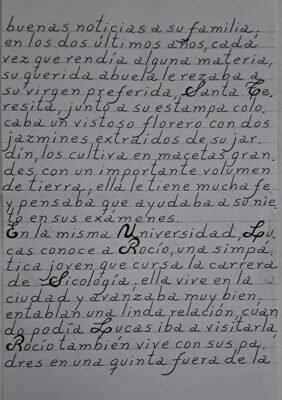 buenas noticias a su familia;
en los dos últimos años, cada
vez que rendía alguna materia,
su querida abuela le rezaba a
su virgen preferida, Santa Te.
resita, junto a su estampa colo.
caba un vistoso florero con dos
jazmines extraídos de su jar.
dín, los cultiva en macetas gran.
des con un importante volumen
de tierra; ella le tiene mucha fe
y pensaba que ayudaba a su nie.
to en sus exámenes.
En la misma Universidad, Lu.
cas conoce a Rocío, una simpá.
tica joven que cursa la carrera
de Sicología, ella vive en la
ciudad y avanzaba muy bien,
entablan una linda relación, cuan
do podía Lucas iba a visitarla,
Rocío también vive con sus pa.
dres en una quinta fuera de la